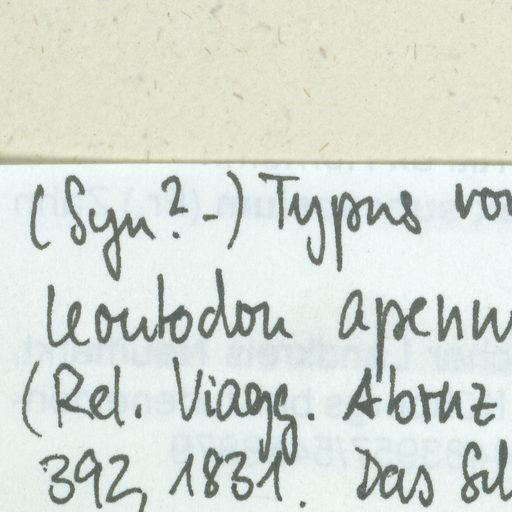 (Syn?-) Typus von
Leontodon apenn
(Rel. Viagg. Abruz
392, 1831. Das